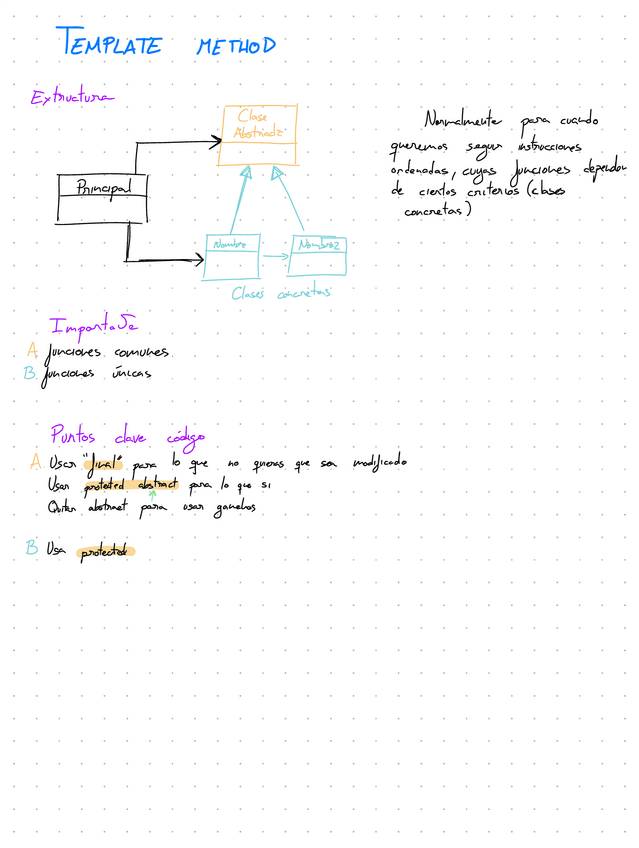 TEMPLATE METHOD
Extructura
Clase
Abstracta
Principal
Nombre
Nombre2
Clases concretas
Normalmente para cuando
queremos seguir instrucciones
ordenadas, cuyas funciones dependen
de ciertos criterios (clases
concretas)
Importante
A funciones comunes
B. funciones únicas
Puntos clave código
A Usar "final" para lo que no quieras que sea modificado
Usar protected abstract para lo que si
Quitar abstract para usar ganchos
B Usa protected